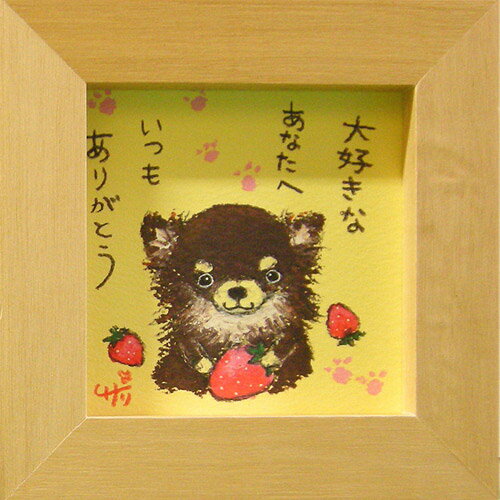 大好きな
あなたへ
いつも
ありがとう